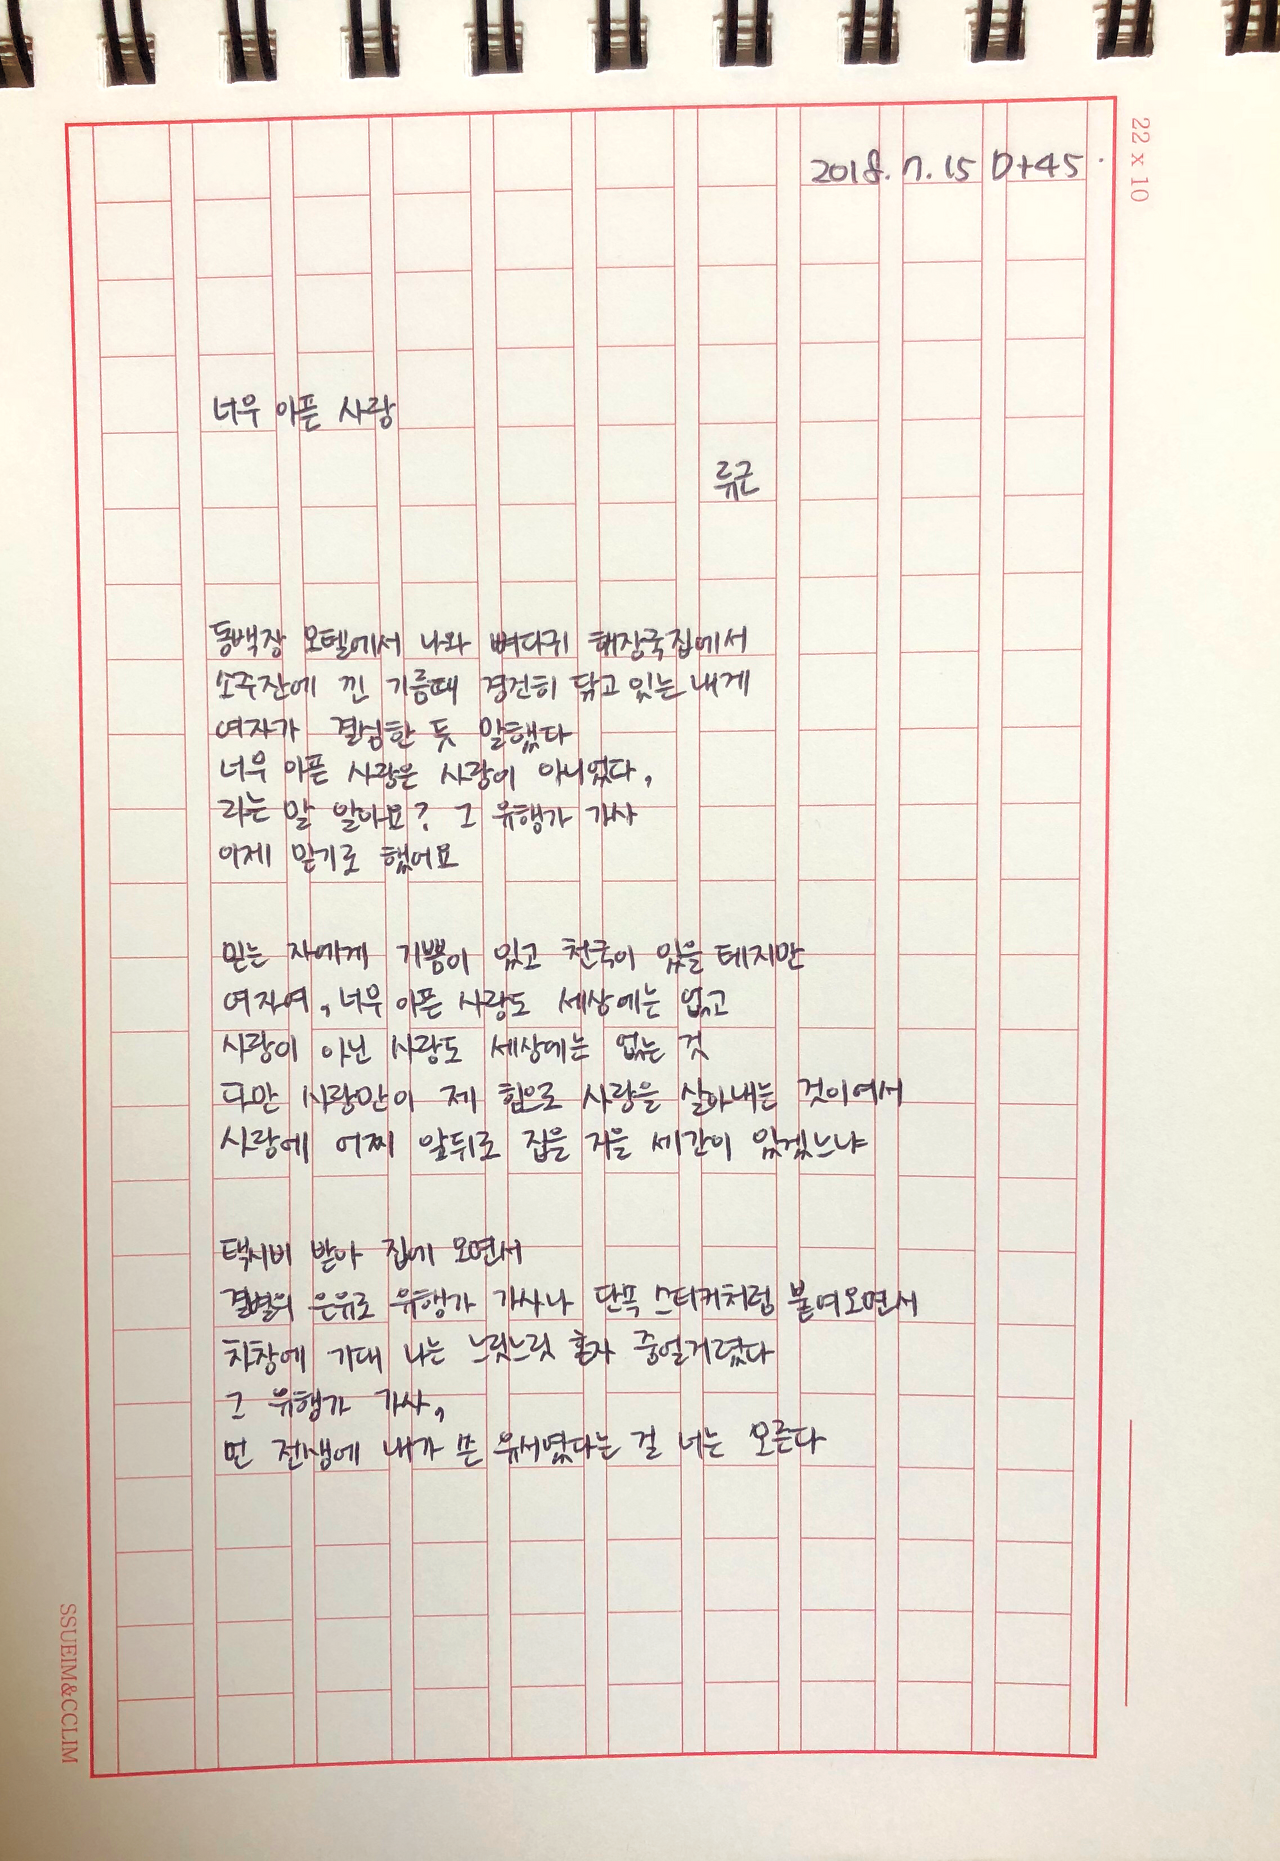 22 x 10
2018. 7. 15 D+45.
너무 아픈 사랑
류근
동백장 모텔에서 나와 뼈다귀 해장국집에서
소주잔에 낀 기름때 경건히 닦고 있는 내게
여자가 결심한 듯 말했다
너무 아픈 사랑은 사랑이 아니었다,
라는 말 알아요? 그 유행가 가사
이제 믿기로 했어요
믿는 자에게 기쁨이 있고 천국이 있을 테지만
여자여, 너무 아픈 사랑도 세상에는 없고
사랑이 아닌 사랑도 세상에는 없는 것
다만 사랑만이 제 힘으로 사랑을 살아내는 것이어서
사랑에 어찌 앞뒤로 집을 지을 세간이 있겠느냐
택시비 받아 집에 오면서
결별의 은유로 유행가 가사나 단풍 스티커처럼 붙여오면서
차창에 기대 나는 느릿느릿 혼자 중얼거렸다
그 유행가 가사,
먼 전생에 내가 쓴 유서였다는 걸 너는 모른다
SSUEIM&CCLIM